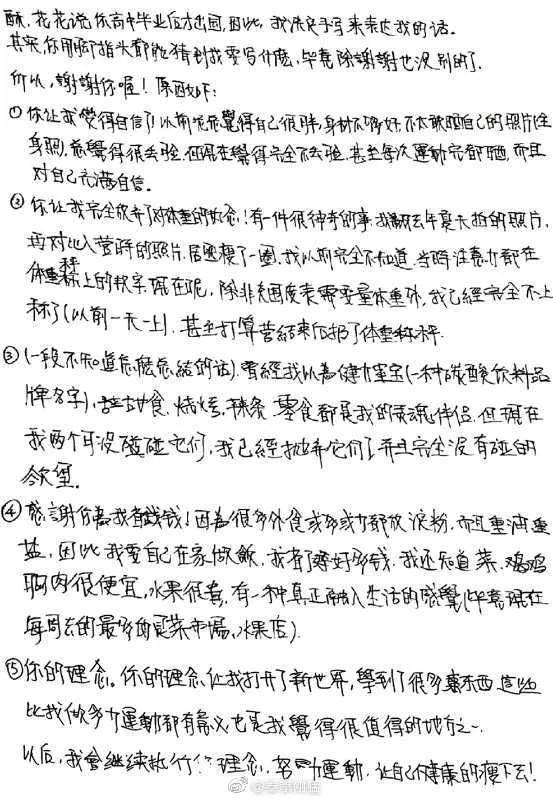 酥，花花说你高中毕业后才出国，因此，我决定手写来表达我的话。
其实，你用脚指头都能猜到我要写什麼，毕竟除謝謝也没别的了。
所以，謝謝你喔！原因如下：
①你让我覺得自信了！以前总覺得自己很胖，身材不够好，不太敢晒自己的照片(全
身照)，总覺得很丢脸，但現在覺得完全不丢脸，甚至每次運動完都晒，而且
对自己充满自信。
②你让我完全放弃了对体重的执念！有一件很神奇的事，我翻去年夏天拍的照片，
再对比入营時的照片，居然瘦了一圈，我以前完全不知道，当時注意力都在
体重秤上的数字，現在呢，除非美国度表需要量体重外，我已經完全不上
秤了(以前一天一上)，甚至打算营结束后扔了体重秤。
③(一段不知道怎麼总結的话)，曾經我以為健力宝(一种碳酸饮料品
牌名字)，垃圾食，烧烤，辣条，零食都是我的灵魂伴侣，但現在
我两个月没碰它们，我已經抛弃它们了，并且完全没有碰的
欲望。
④感謝你為我省錢钱！因為很多外食或多或少都放淀粉，而且重油重
盐，因此我要自己在家做飯，我省了好多钱，我还知道菜、鸡鸡
胸肉很便宜，水果很貴，有一种真正融入生活的感覺(毕竟現在
每周去的最多的是菜市場，水果店)
⑤你的理念。你的理念，让我打开了新世界，學到了很多東西，這些
比我做多少運動都有意义也是我覺得很值得的地方之一。
以后，我會继续执行 理念，努力運動，让自己健康的瘦下去！